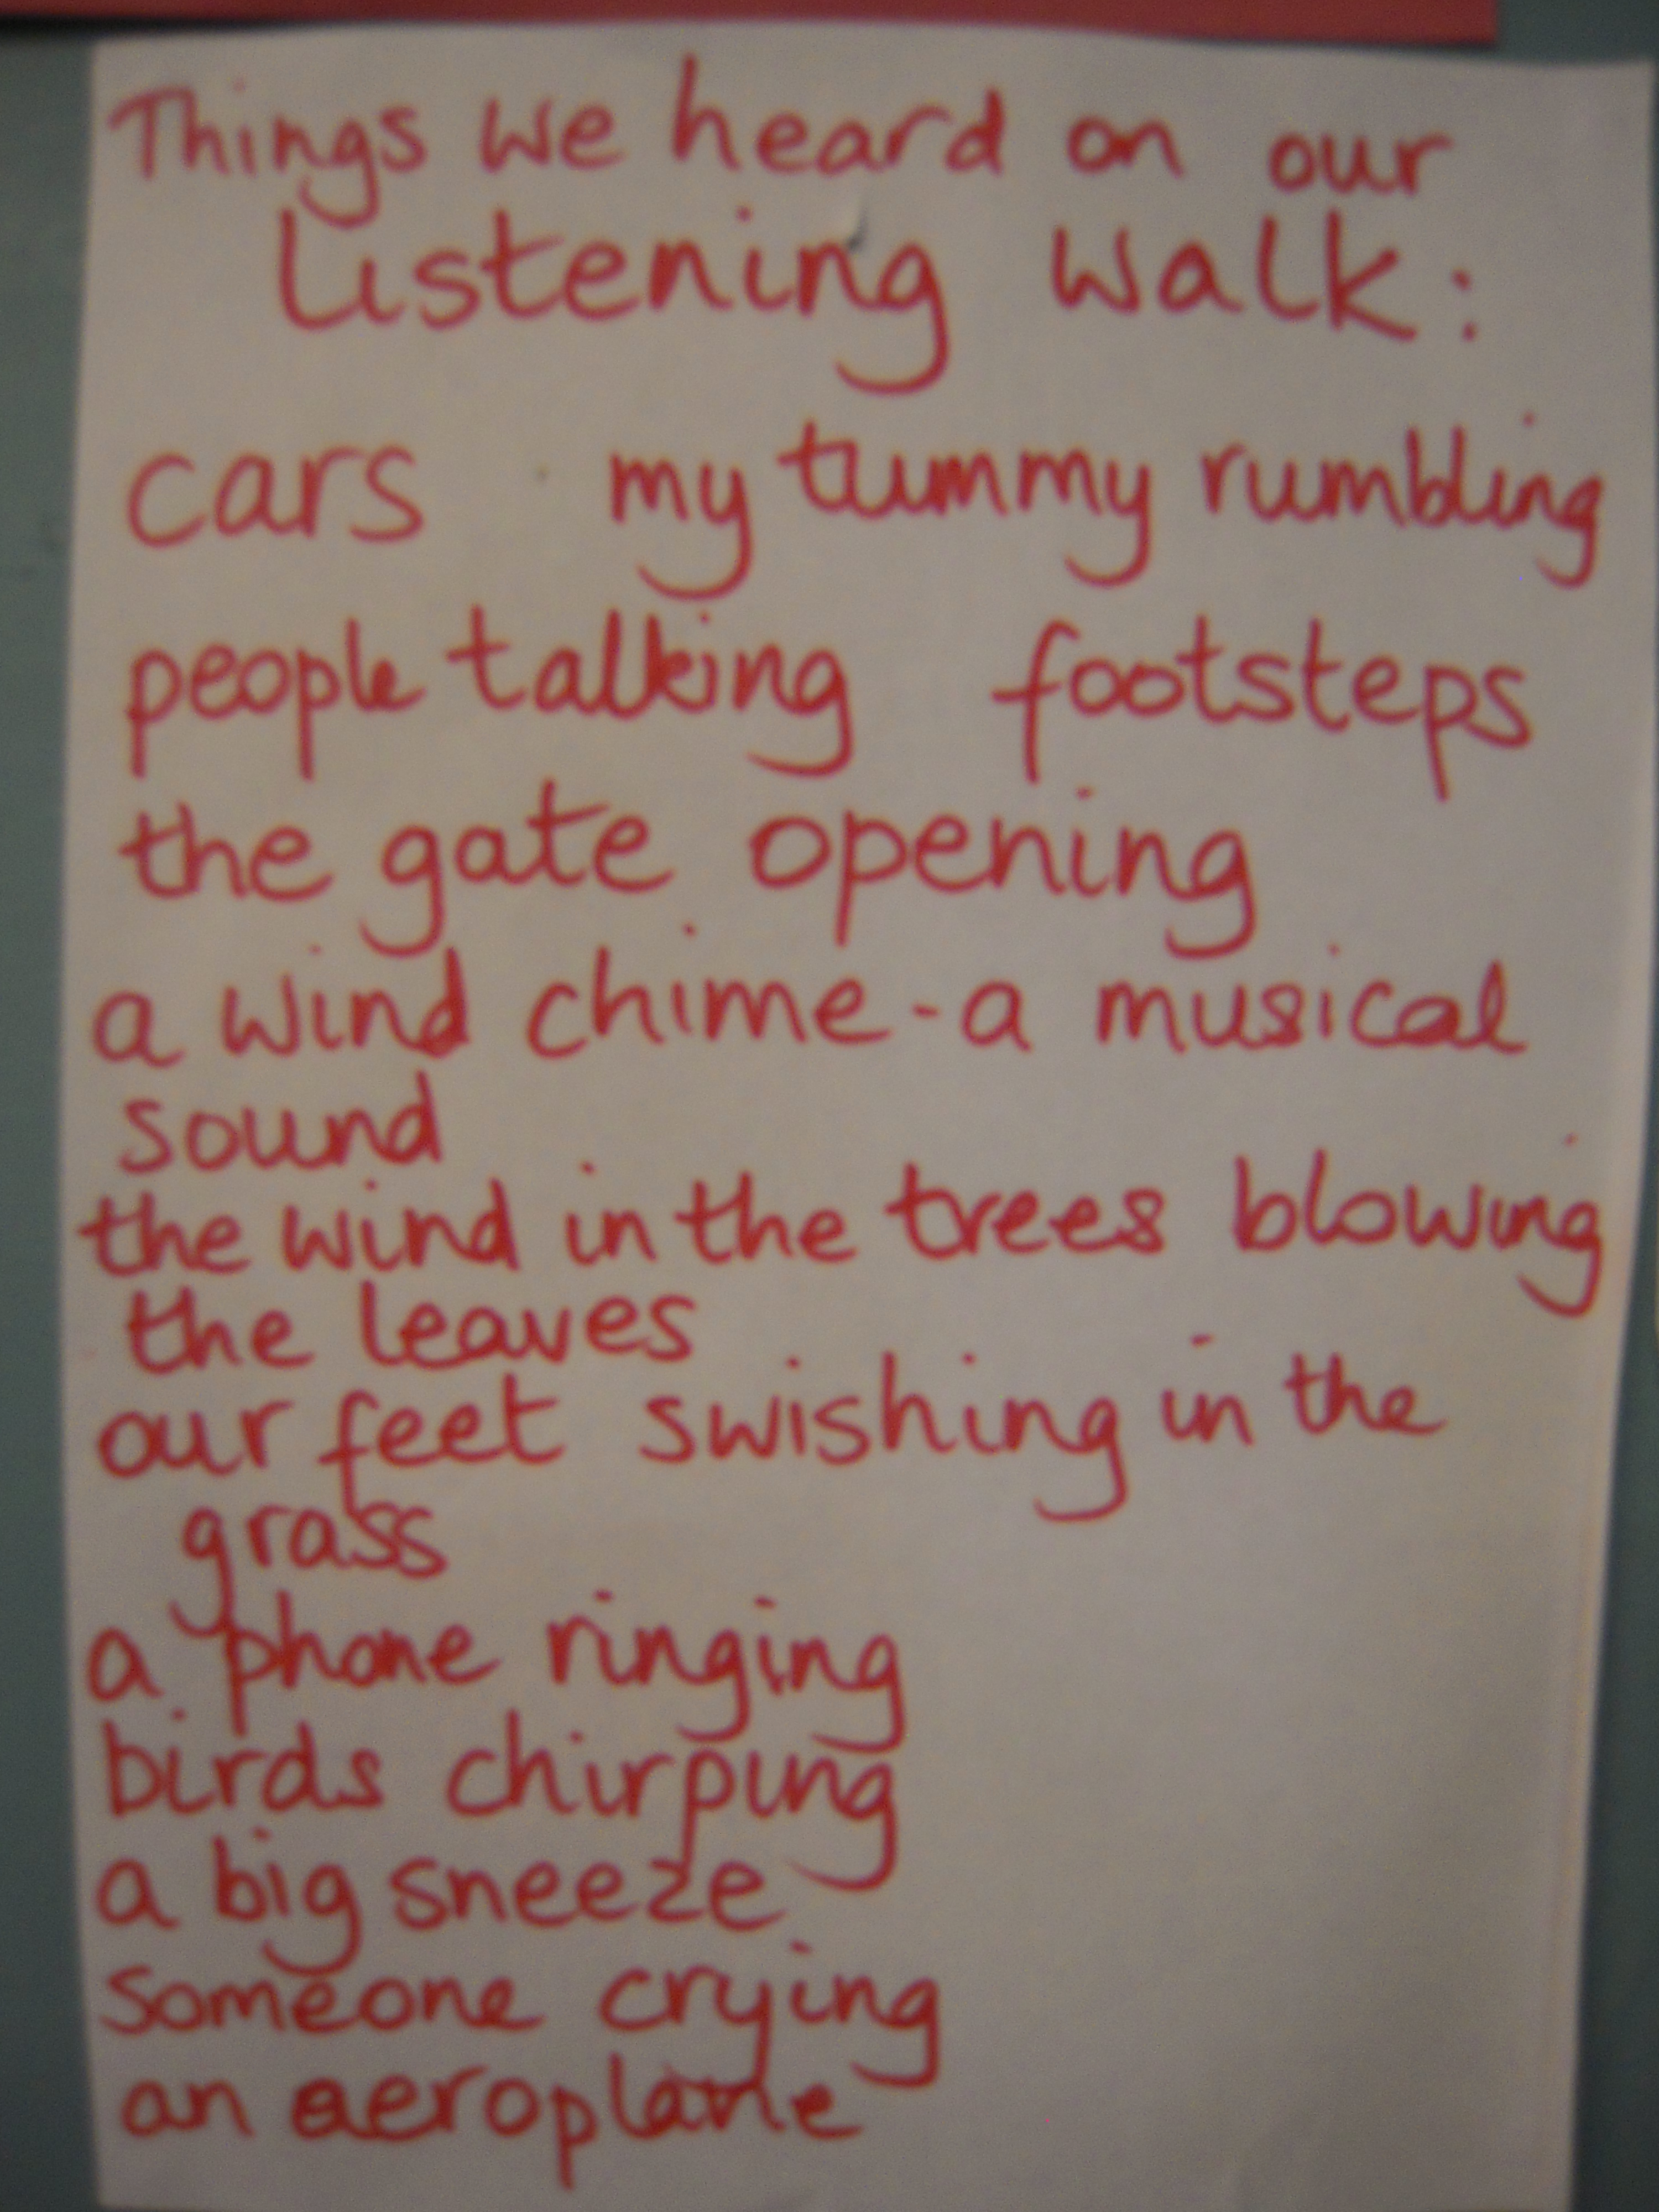 Things we heard on our
listening walk:
cars my tummy rumbling
people talking footsteps
the gate opening
a wind chime - a musical
sound
the wind in the trees blowing
the leaves
our feet swishing in the
grass
a phone ringing
birds chirping
a big sneeze
someone crying
an aeroplane